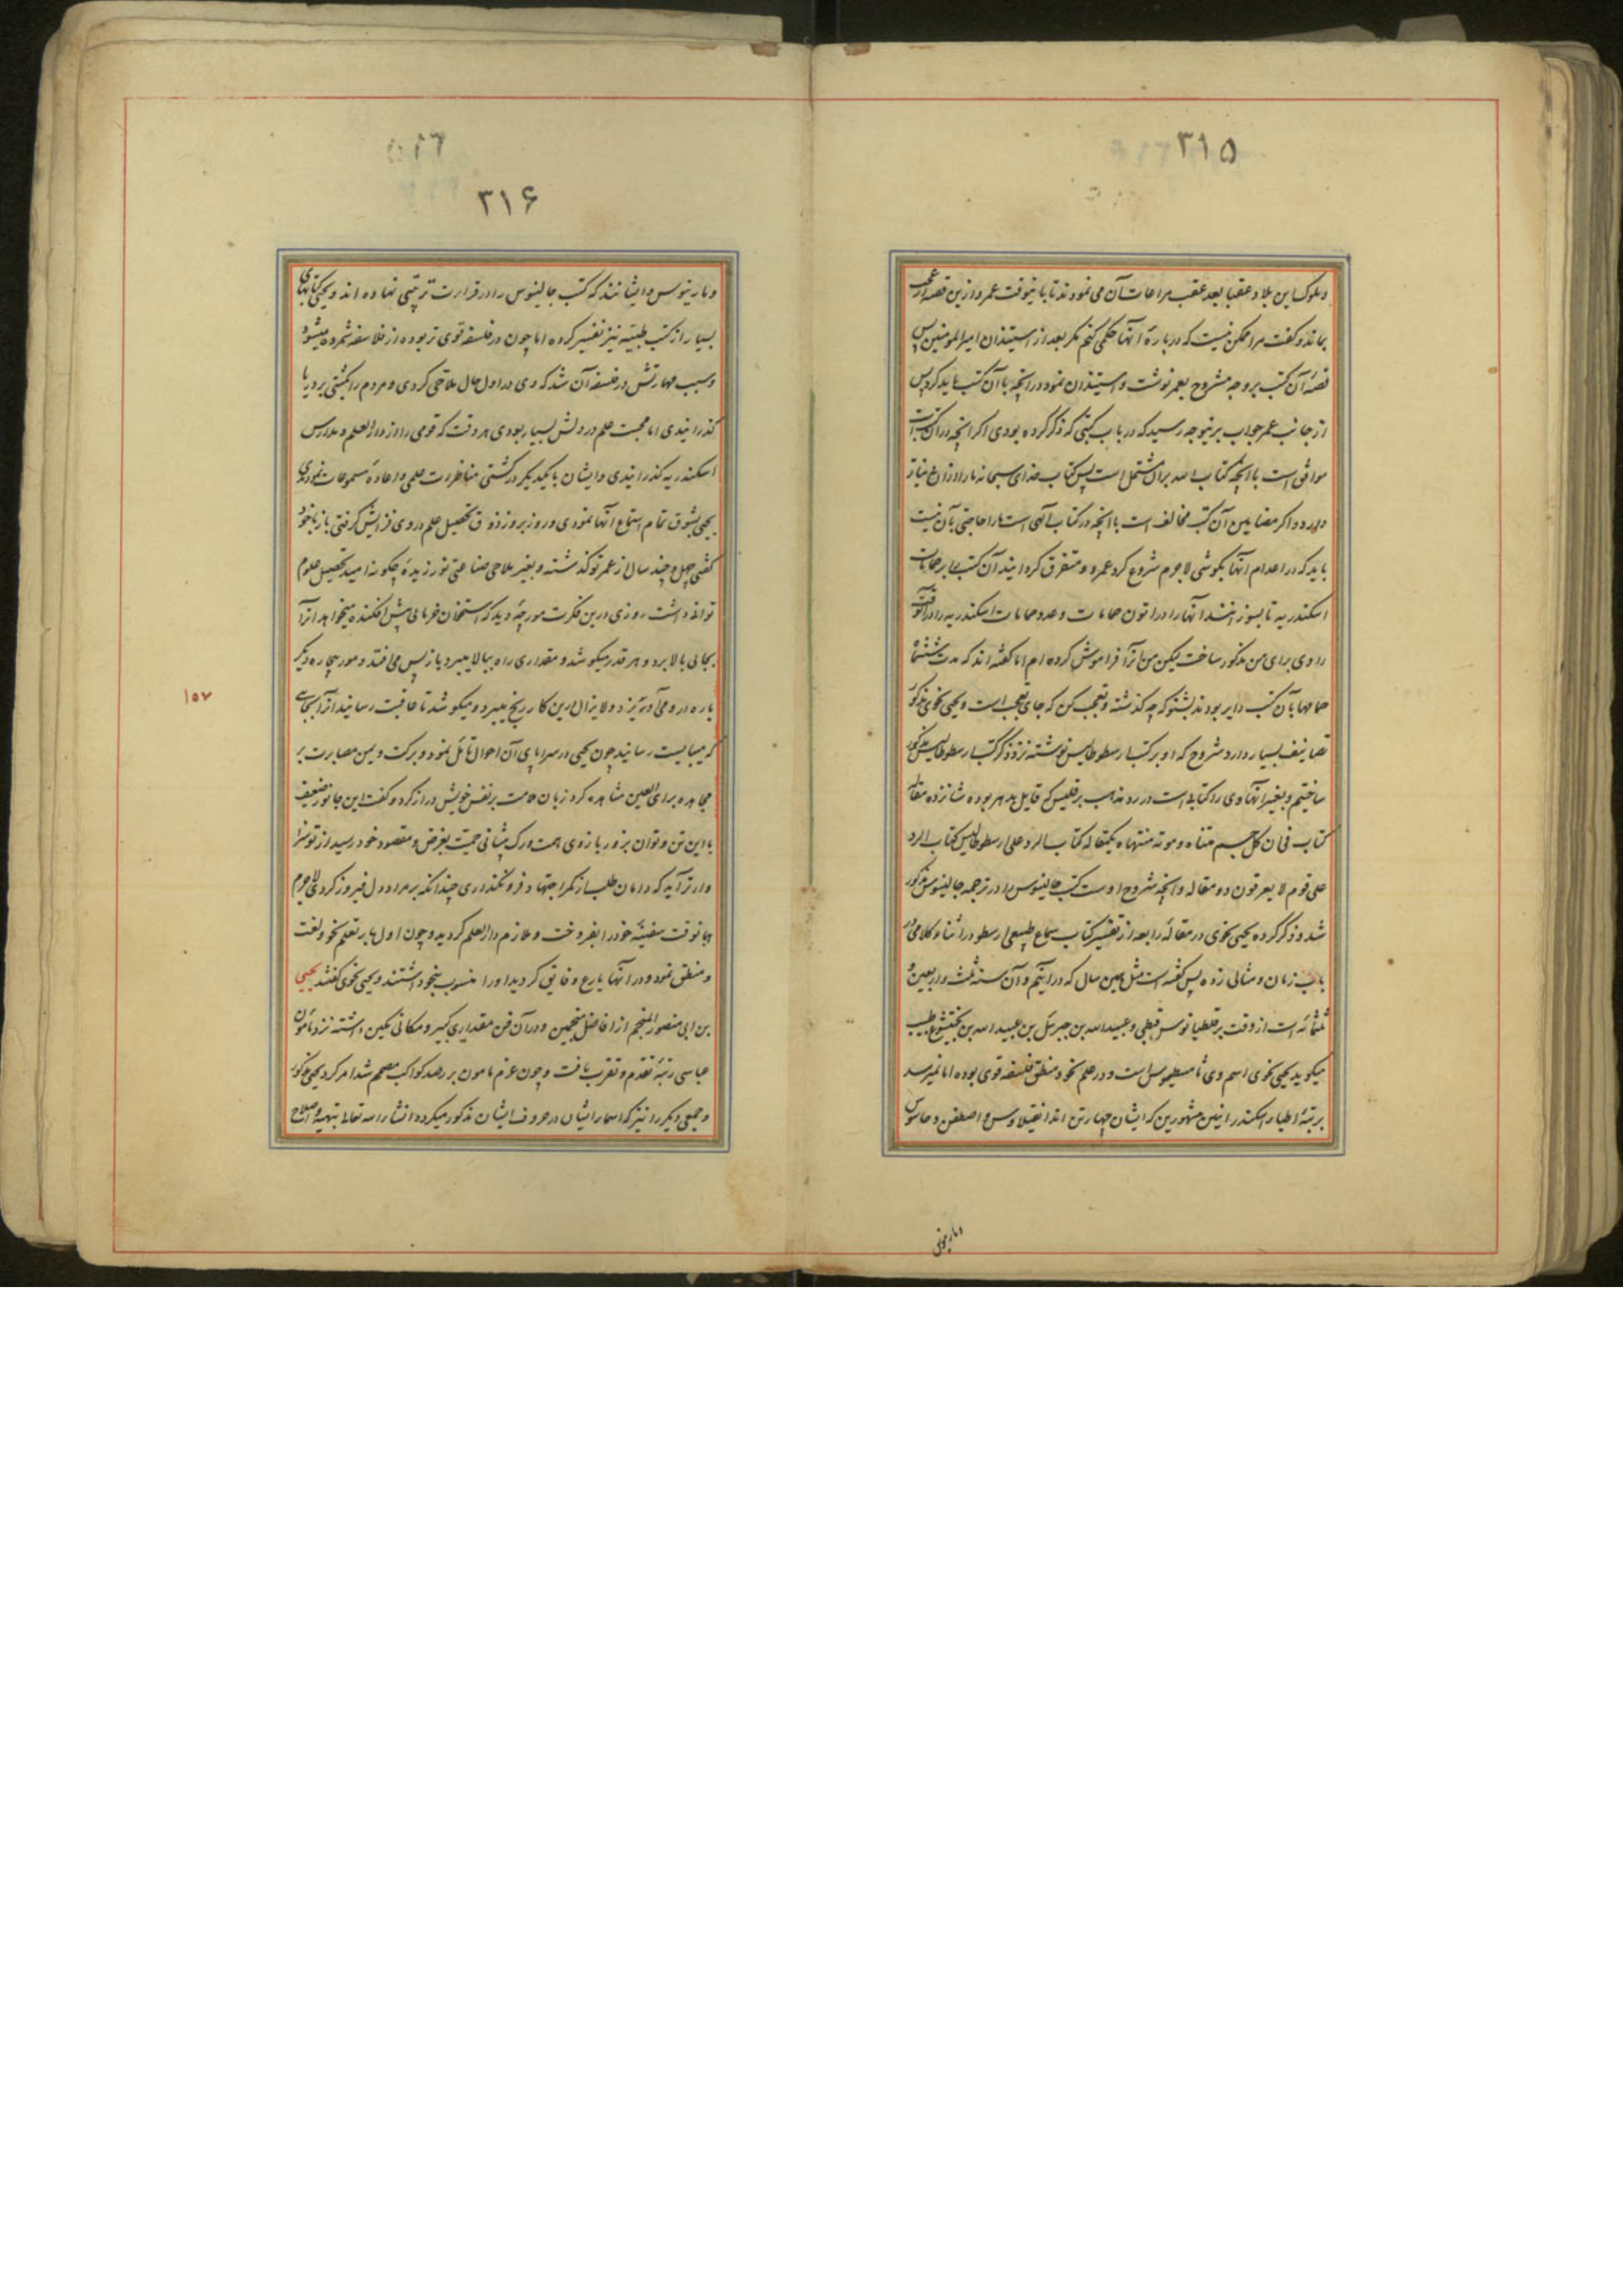 ۳۱۵
و ملوک این بلاد عقبا بعد عقب مراعات آن می نمودند تا باینوقت عمرو ازین قصه در عجب
بماند و کفت مرا ممکن نیست که درباره آنها حکمی کنم مکر بعد از استیذان امیرالمومنین پس
قصه آن کتب بروجه مشروح بعمر نوشت و استیذان نمود در آنچه با آن کتب باید کرد پس
از جانب عمر جواب برینوجه رسید که در باب کتبی که ذکر کرده بودی اکر آنچه در آن کتب است
موافق است با آنچه کتاب الله بران مشتمل است پس کتاب خدای سبحانه ما را از آن بی نیاز
دارد و اکر مضامین آن کتب مخالف است با آنچه در کتاب آلهی است ما را حاجتی بآن نیست
باید که در اعدام آنها بکوشی لاجرم شروع کرد عمرو و متفرق کردانید آن کتب را بر حمامات
اسکندریه تا بسوزانند آنها را در اتون حمامات و عدد حمامات اسکندریه را در آنوقت
راوی برای من مذکور ساخت لیکن من آنرا فراموش کرده ام اما کفته اند که مدت ششماه
حمامها بآن کتب دایر بودند بشنو که چه کذشته و تعجب کن که جای تعجب است و یحیی نحوی مذکور
تصانیف بسیار دارد شروح که او بر کتب ارسطوطالیس نوشته نزد ذکر کتب ارسطوطالیس مذکور
ساختیم و بغیر آنها وی را کتابی است در رد مذهب برقلیس که قایل بدهر بوده شانزده مقاله
کتاب فی ان کل جسم متناه و موته متناه یکمقاله کتاب الرد علی ارسطوطالیس کتاب الرد
علی قوم لا یعرفون دو مقاله و آنچه شروح اوست کتب جالینوس را در ترجمه جالینوس مذکور
شد و ذکر کرده یحیی نحوی در مقاله رابعه از تفسیر کتاب سماع طبیعی ارسطو در اثناء کلامی در
باب زمان و مثالی زده پس کفته است مثل همین سال که در آنیم و آن سنه ثلث و اربعین و
ثلثمائه است از وقت برقلطیانوس قبطی و عبیدالله بن جبرئل بن عبیدالله بن بختیشوع طبیب
میکوید یحیی نحوی اسم وی ثامسطیوس است و در علم نحو و منطق و فلسفه قوی بوده اما نمیرسد
برتبه اطباء اسکندرانیین مشهورین که ایشان چهار تن اند انقیلاوس و اصطفن و جاسیوس
و مارینوس
۳۱۶
و مارینوس و ایشانند که کتب جالینوس را در قرارت ترتیبی نهاده اند و یحیی کتابهای
بسیار از کتب طبیه نیز تفسیر کرده اما چون در فلسفه قوی تر بوده از فلاسفه شمرده میشود
و سبب مهارتش در فلسفه آن شد که وی در اول حال ملاحی کردی و مردم را بکشتی بر دریا
کذرانیدی اما محبت علم در دلش بسیار بودی هر وقت که قومی را از دارالعلم و مدارس
اسکندریه کذرانیدی و ایشان با یکدیکر در کشتی مناظرات علمی و اعاده مسموعات نمودندی
یحیی بشوق تمام استماع آنها نمودی و روز بروز ذوق تحصیل علم در وی فزایش کرفتی باز با خود
کفتی چهل و چند سال از عمر تو کذشته و بغیر ملاحی صناعتی نورزیده چکونه امید تحصیل علوم
توانی داشت روزی درین فکرت مورچه دید که استخوان خرمائی پیش افکنده میخواهد آنرا
بجائی بالا برد و هر قدر میکوشد و مقداری راه ببالا میبرد باز پس می افتد و مور بیچاره دیکر
باره در وی می آویزد و لایزال درین کار رنج میبرد و میکوشد تا عاقبت رسانید آنرا بجائی
که میبایست رسانید چون یحیی در سراپای آن احوال تامل نمود و برکت و یمن مصابرت بر
مجاهده برای العین مشاهده کرد زبان ملامت بر نفس خویش دراز کرد و کفت این جانور ضعیف
باین تن و توان بزور بازوی همت و رک پیشانی حمیت بغرض و مقصود خود رسید از تو سزا
وارتر آید که دامان طلب از کمر اجتهاد فرو نکذاری چندانکه بر مراد دل فیروز کردی لاجرم
همانوقت سفینه خود را بفروخت و ملازم دارالعلم کردید و چون اول بار بتعلم نحو و لغت
و منطق نمود و در آنها بارع و فایق کردید او را منسوب بنحو داشتند و یحیی نحوی کفتند یحیی
بن ابی منصور المنجم از افاضل منجمین و در آن فن مقداری کبیر و مکانی مکین داشته نزد مامون
عباسی رتبه تقدم و تقرب یافت و چون عزم مامون بر رصد کواکب مصمم شد امر کرد یحیی مذکور
و جمعی دیکر را نیز که اسماء ایشان در حروف ایشان مذکور میکردد انشاء الله تعالی بتهیه و اصلاح
۱۵۷